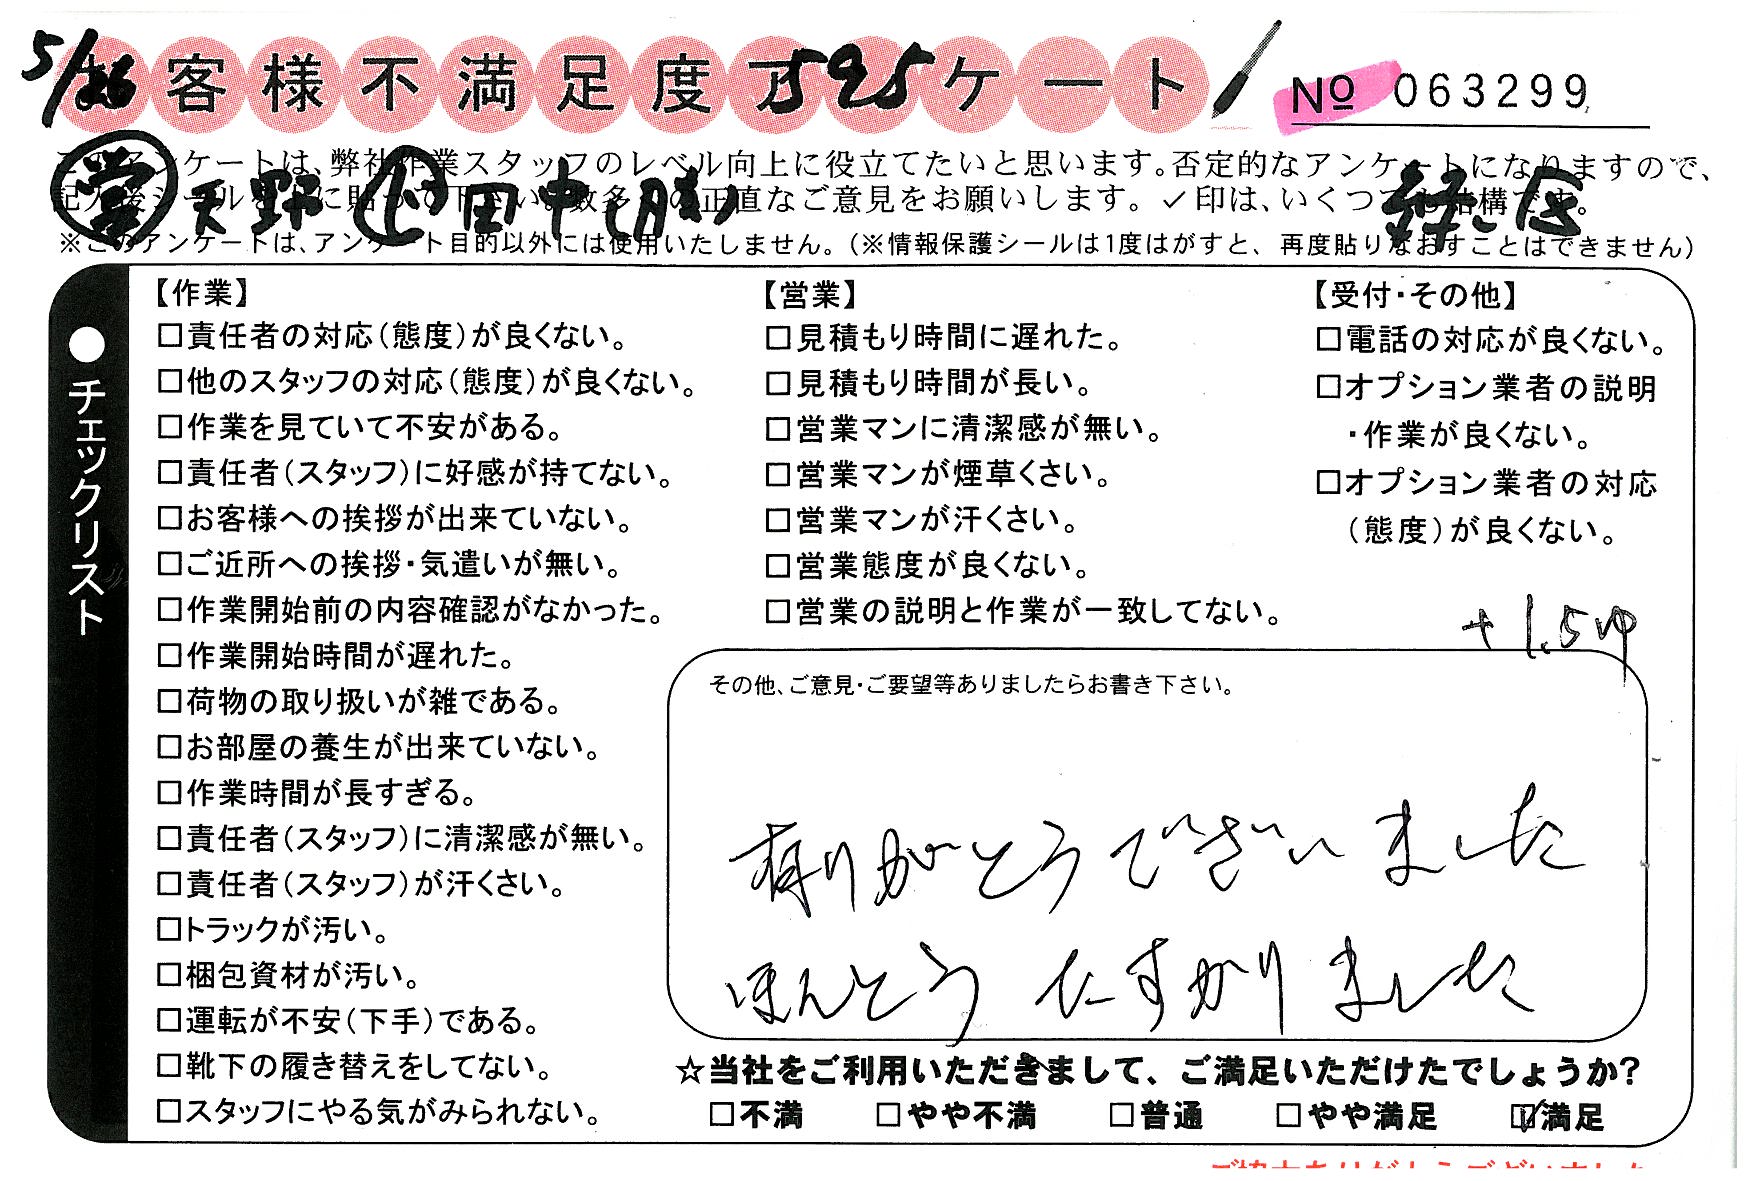 5/26 お客様不満足度アンケート 595 No 063299
このアンケートは、弊社作業スタッフのレベル向上に役立てたいと思います。否定的なアンケートになりますので、
記入後シールを上に貼って下さい。数多くの正直なご意見をお願いします。✓印は、いくつでも結構です。
営 天野 田中
※このアンケートは、アンケート目的以外には使用いたしません。(※情報保護シールは1度はがすと、再度貼りなおすことはできません)
●チェックリスト
【作業】
□責任者の対応(態度)が良くない。
□他のスタッフの対応(態度)が良くない。
□作業を見ていて不安がある。
□責任者(スタッフ)に好感が持てない。
□お客様への挨拶が出来ていない。
□ご近所への挨拶・気遣いが無い。
□作業開始前の内容確認がなかった。
□作業開始時間が遅れた。
□荷物の取り扱いが雑である。
□お部屋の養生が出来ていない。
□作業時間が長すぎる。
□責任者(スタッフ)に清潔感が無い。
□責任者(スタッフ)が汗くさい。
□トラックが汚い。
□梱包資材が汚い。
□運転が不安(下手)である。
□靴下の履き替えをしてない。
□スタッフにやる気がみられない。
【営業】
□見積もり時間に遅れた。
□見積もり時間が長い。
□営業マンに清潔感が無い。
□営業マンが煙草くさい。
□営業マンが汗くさい。
□営業態度が良くない。
□営業の説明と作業が一致してない。
【受付・その他】
□電話の対応が良くない。
□オプション業者の説明
・作業が良くない。
□オプション業者の対応
(態度)が良くない。
+1.5ゆ
その他、ご意見・ご要望等ありましたらお書き下さい。
有りがとうございました
ほんとう たすかりました
☆当社をご利用いただきまして、ご満足いただけたでしょうか?
□不満 □やや不満 □普通 □やや満足 ☑満足